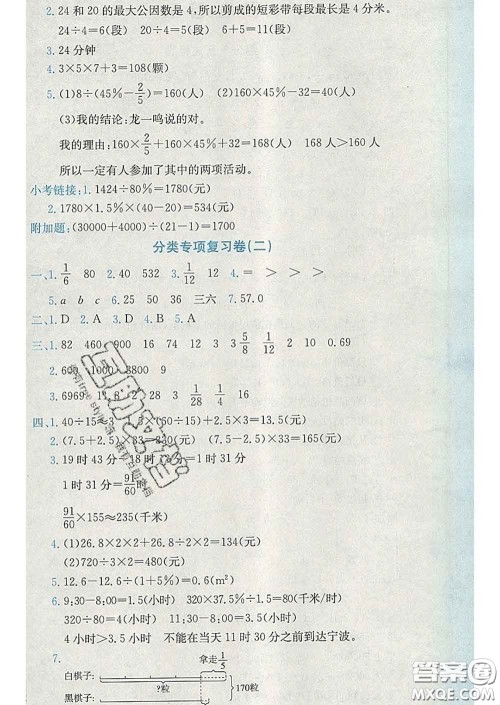 2. 24和20的最大公因数是4,所以剪成的短彩带每段最长是4分米。
24÷4=6(段) 20÷4=5(段) 6+5=11(段)
3. 24分钟
4. 3×5×7+3=108(颗)
5. (1)8÷(45%-2/5)=160(人) (2)160×45%=72(人)
(3)我的结论:龙一鸣说的对。
我的理由:160×2/5+160×45%+32=168(人) 168人>160人
所以一定有人参加了其中的两项活动。
小考链接:1. 1424÷80%=1780(元)
2. 1780×1.5%×(40-20)=534(元)
附加题:(30000+4000)÷(21-1)=1700
分类专项复习卷(二)
一、1. 1/6 80 2. 40 532 3. 1/12 4. = > > >
5. a b c 6. 25 50 36 三六 7. 57.0
二、1. D 2. A 3. B 4. B 5. A
三、1. 82 460 900 16 74 12 3 5/8 1/12 2 10 0.69
2. 600 1000 3800 9
3. 6969 12 8 2 28 3 1/28 1/4 16
四、1. 40÷15= 1.5×(50÷15)+2.5×3=13.5(元)
2. (7.5+2.5)× =33(元)
3. 19时43分-18时 =1时31分
1时31分=91/60时
91/60×155≈235(千米)
4. (1)26.8×2×2+26.8×2÷2=134(元)
(2)720÷3×2=480(元)
5. 12.6-12.6÷(1+5%)=0.6(m²)
6. 9:30-8:00=1.5(小时) 320×37.5%÷1.5=80(千米/小时)
320÷80=4(小时) 11:30-8:00=3.5(小时)
4小时>3.5小时 不能在当天11时30分之前到达宁波。
7.
拿走1/5
白棋子:
?粒
170粒
黑棋子:
答案圈
MXQE.COM